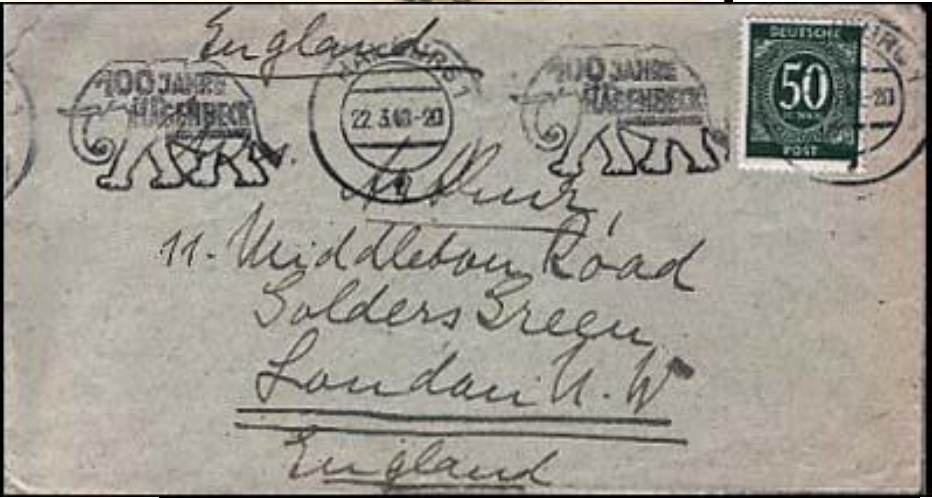 England
100 JAHRE
HAGENBECK
HAMBURG 1
22.3.48-20
100 JAHRE
HAGENBECK
DEUTSCHE
50
POST
Arthur
11. Middleton Road
Golders Green
London N.W
England